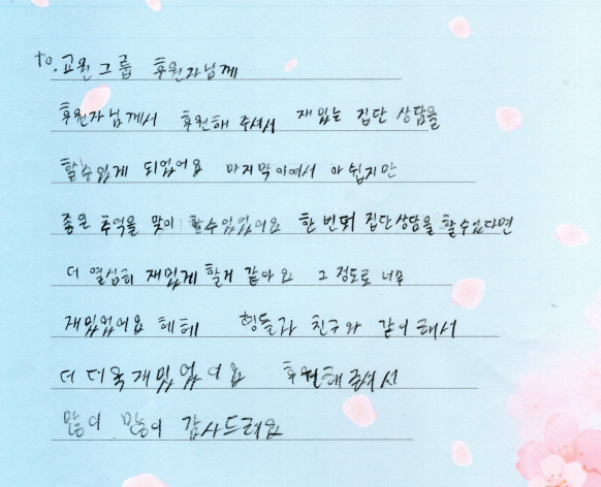 to. 교원그룹 후원자님께
후원자님께서 후원해 주셔서 재밌는 집단 상담을
할수있게 되었어요 마지막이여서 아쉽지만
좋은 추억을 맞이 할수있었어요 한 번떠 집단상담을 할수있다면
더 열심히 재밌게 할거 같아요 그 정도로 너무
재밌었어요 헤헤 형들과 친구와 같이 해서
더 더욱 재밌었어요 후원해주셔서
많이 많이 감사드려요